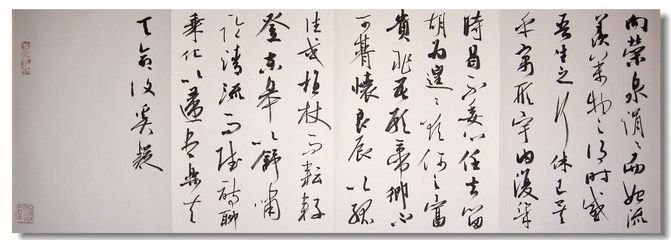 向榮泉涓涓而始流
羨萬物之得時感
吾生之行休已矣
乎寓形宇内復幾
時曷不委心任去留
胡為遑遑欲何之富
貴非吾願帝鄉不
可期懷良辰以孤
往或植杖而耘耔
登東皋以舒嘯
臨清流而賦詩聊
乘化以歸盡樂夫
天命復奚疑